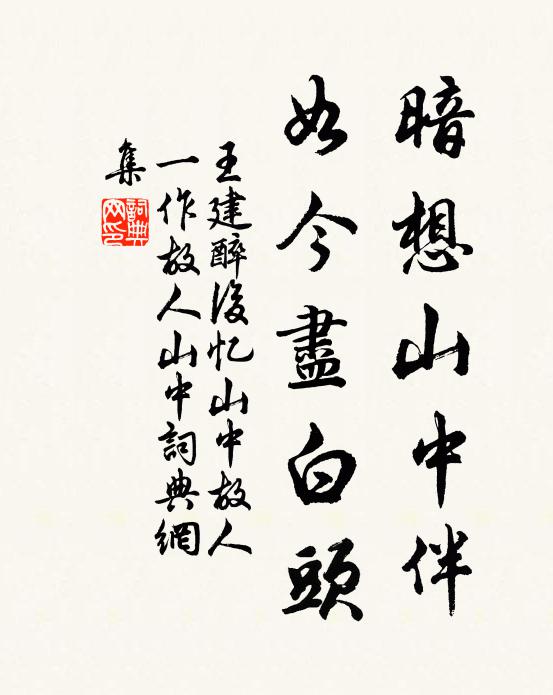 暗想山中伴
如今盡白頭
王建醉後忆山中故人
一作故人山中詞典網
集
詞典網印